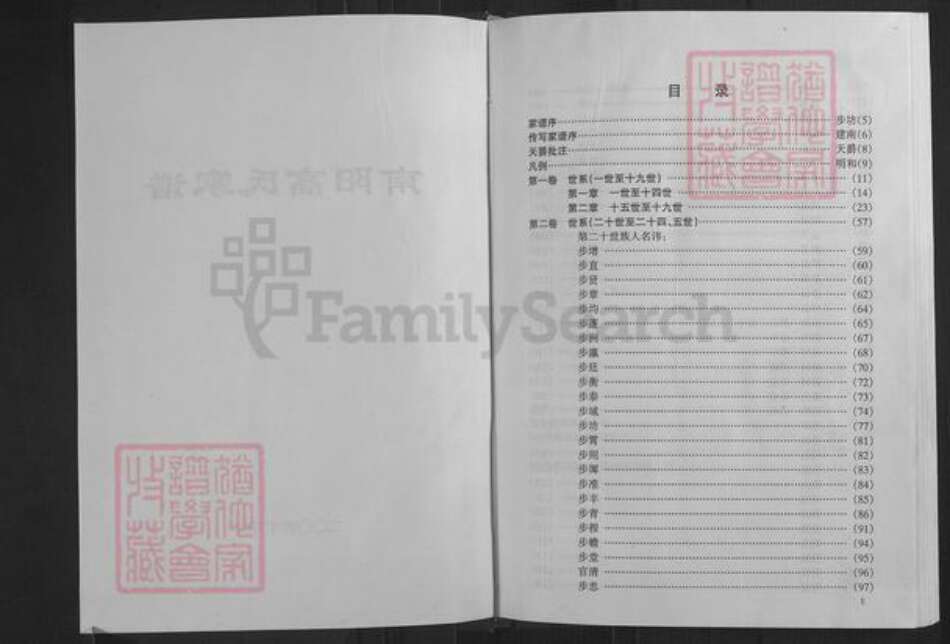 南阳高氏家谱
FamilySearch
目 录
家谱序 步坊(5)
传写家谱序 建南(6)
天爵批注 天爵(8)
凡例 明和(9)
第一卷 世系(一世至十九世) (11)
第一章 一世至十四世 (14)
第二章 十五世至十九世 (23)
第二卷 世系(二十世至二十四、五世) (57)
第二十世族人名讳：
步增 (59)
步直 (60)
步贤 (61)
步章 (62)
步均 (64)
步蓬 (65)
(67)
步瀛 (68)
步廷 (70)
步衡 (72)
步泰 (73)
步域 (74)
步坊 (77)
步霄 (81)
步阳 (82)
(83)
步准 (84)
步丰 (85)
步青 (86)
(91)
步瞻 (94)
步堂 (95)
官清 (96)
步忠 (97)
1